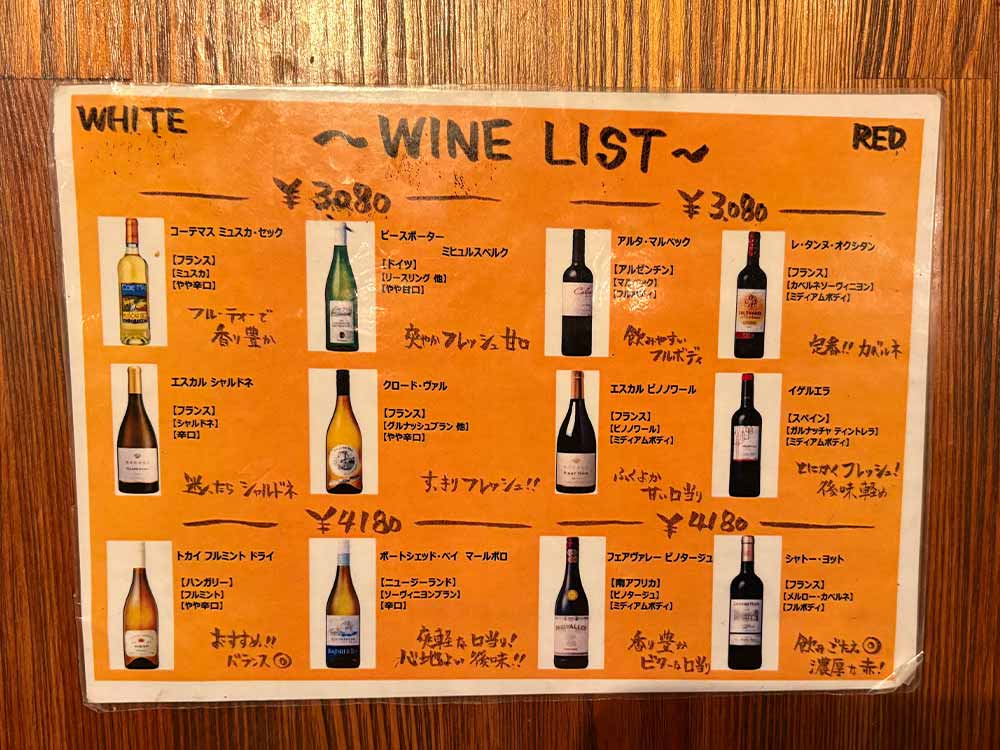 WHITE
~WINE LIST~
RED
¥3,080
コーテマス ミュスカ・セック
【フランス】
【ミュスカ】
【やや辛口】
フルーティーで
香り豊か
ピースポーター
ミヒュルスベルク
【ドイツ】
【リースリング 他】
【やや甘口】
爽やかフレッシュ甘口
エスカル シャルドネ
【フランス】
【シャルドネ】
【辛口】
迷ったらシャルドネ
クロード・ヴァル
【フランス】
【グルナッシュブラン 他】
【やや辛口】
すっきりフレッシュ!!
¥4180
トカイ フルミント ドライ
【ハンガリー】
【フルミント】
【やや辛口】
おすすめ!!
バランス◎
ポートシェッド・ベイ マールボロ
【ニュージーランド】
【ソーヴィニヨンブラン】
【辛口】
爽軽な口当り!
心地よい後味!!
¥3,080
アルタ・マルベック
【アルゼンチン】
【マルベック】
【フルボディ】
飲みやすい
フルボディ
レ・タンヌ・オクシタン
【フランス】
【カベルネソーヴィニヨン】
【ミディアムボディ】
定番!! カベルネ
エスカル ピノノワール
【フランス】
【ピノノワール】
【ミディアムボディ】
ふくよか
甘い口当り
イゲルエラ
【スペイン】
【ガルナッチャ ティントレラ】
【ミディアムボディ】
とにかくフレッシュ!
後味軽め
¥4180
フェアヴァレー ピノタージュ
【南アフリカ】
【ピノタージュ】
【ミディアムボディ】
香り豊か
ビターな口当り
シャトー・ヨット
【フランス】
【メルロー・カベルネ】
【フルボディ】
飲みごたえ◎
濃厚な赤!